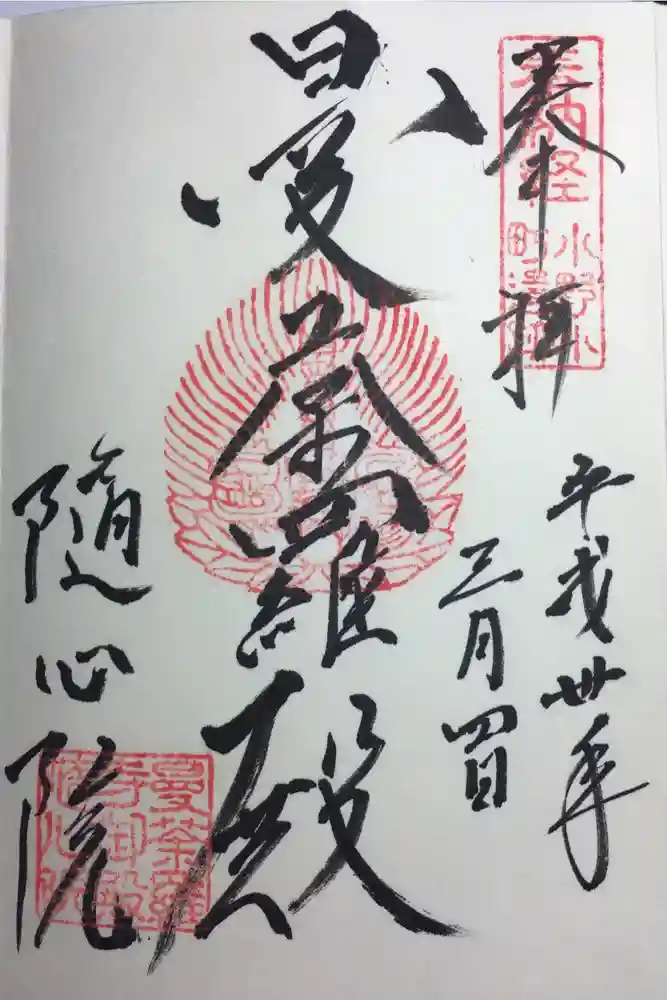 奉拝
小野小町
平成卅年
三月四日
曼荼羅殿
隨心院
曼荼羅
寺御殿
随心院